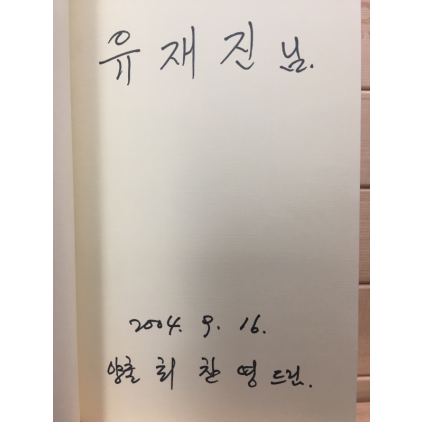 유재진 님.
2004. 9. 16.
최찬영 드림.